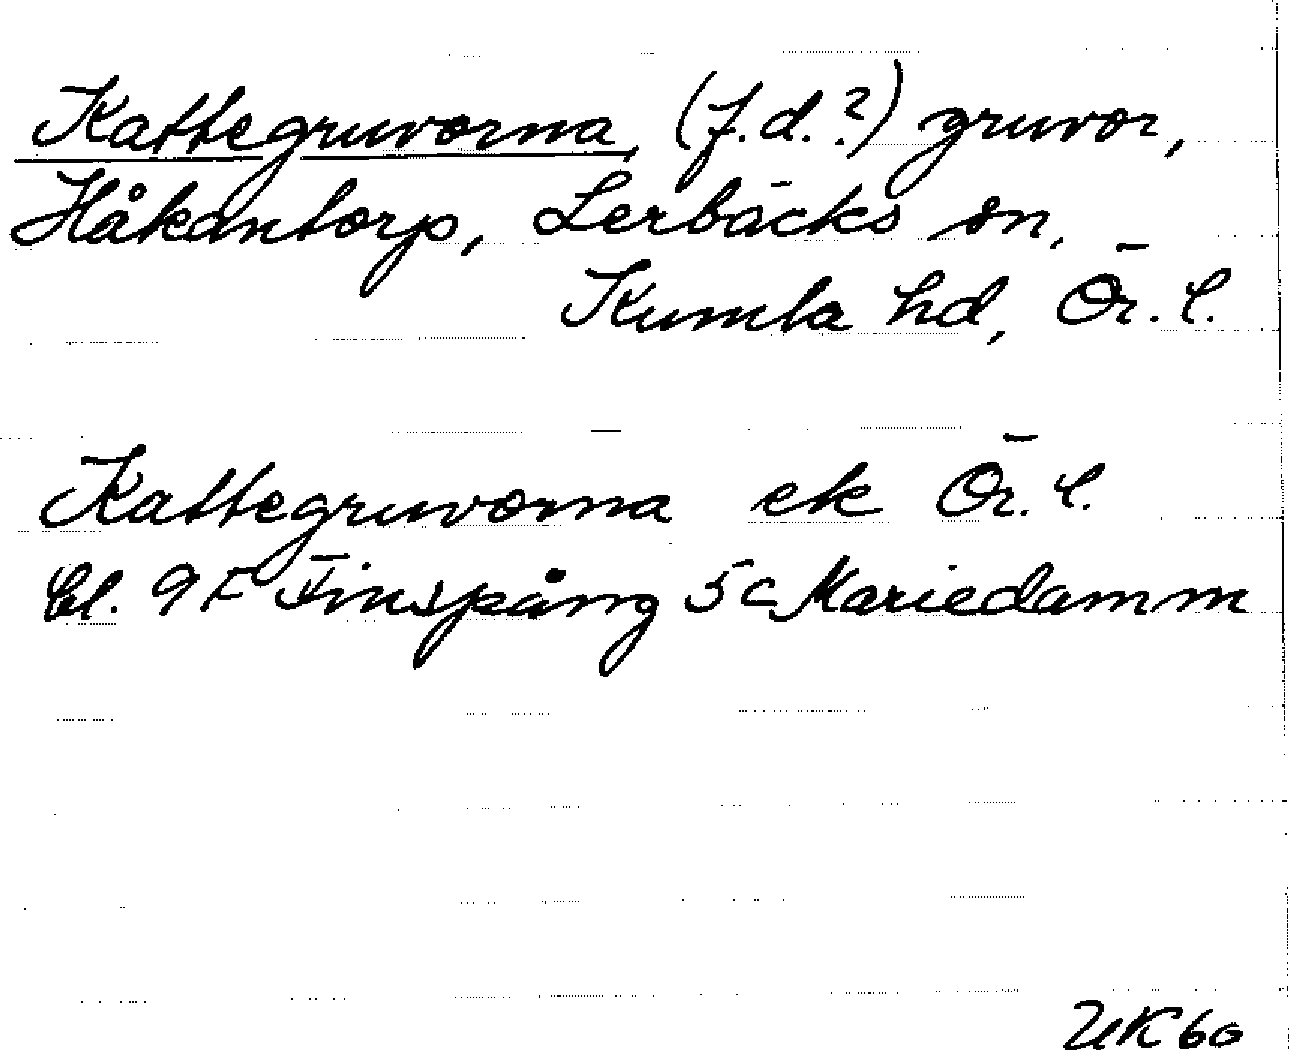 Kattegruvorna, (f.d.?) gruvor,
Håkantorp, Lerbäcks sn,
Kumla hd, Ör. l.
Kattegruvorna ek Ör. l.
bl. 9F Finspång 5c Mariedamm
UK 60